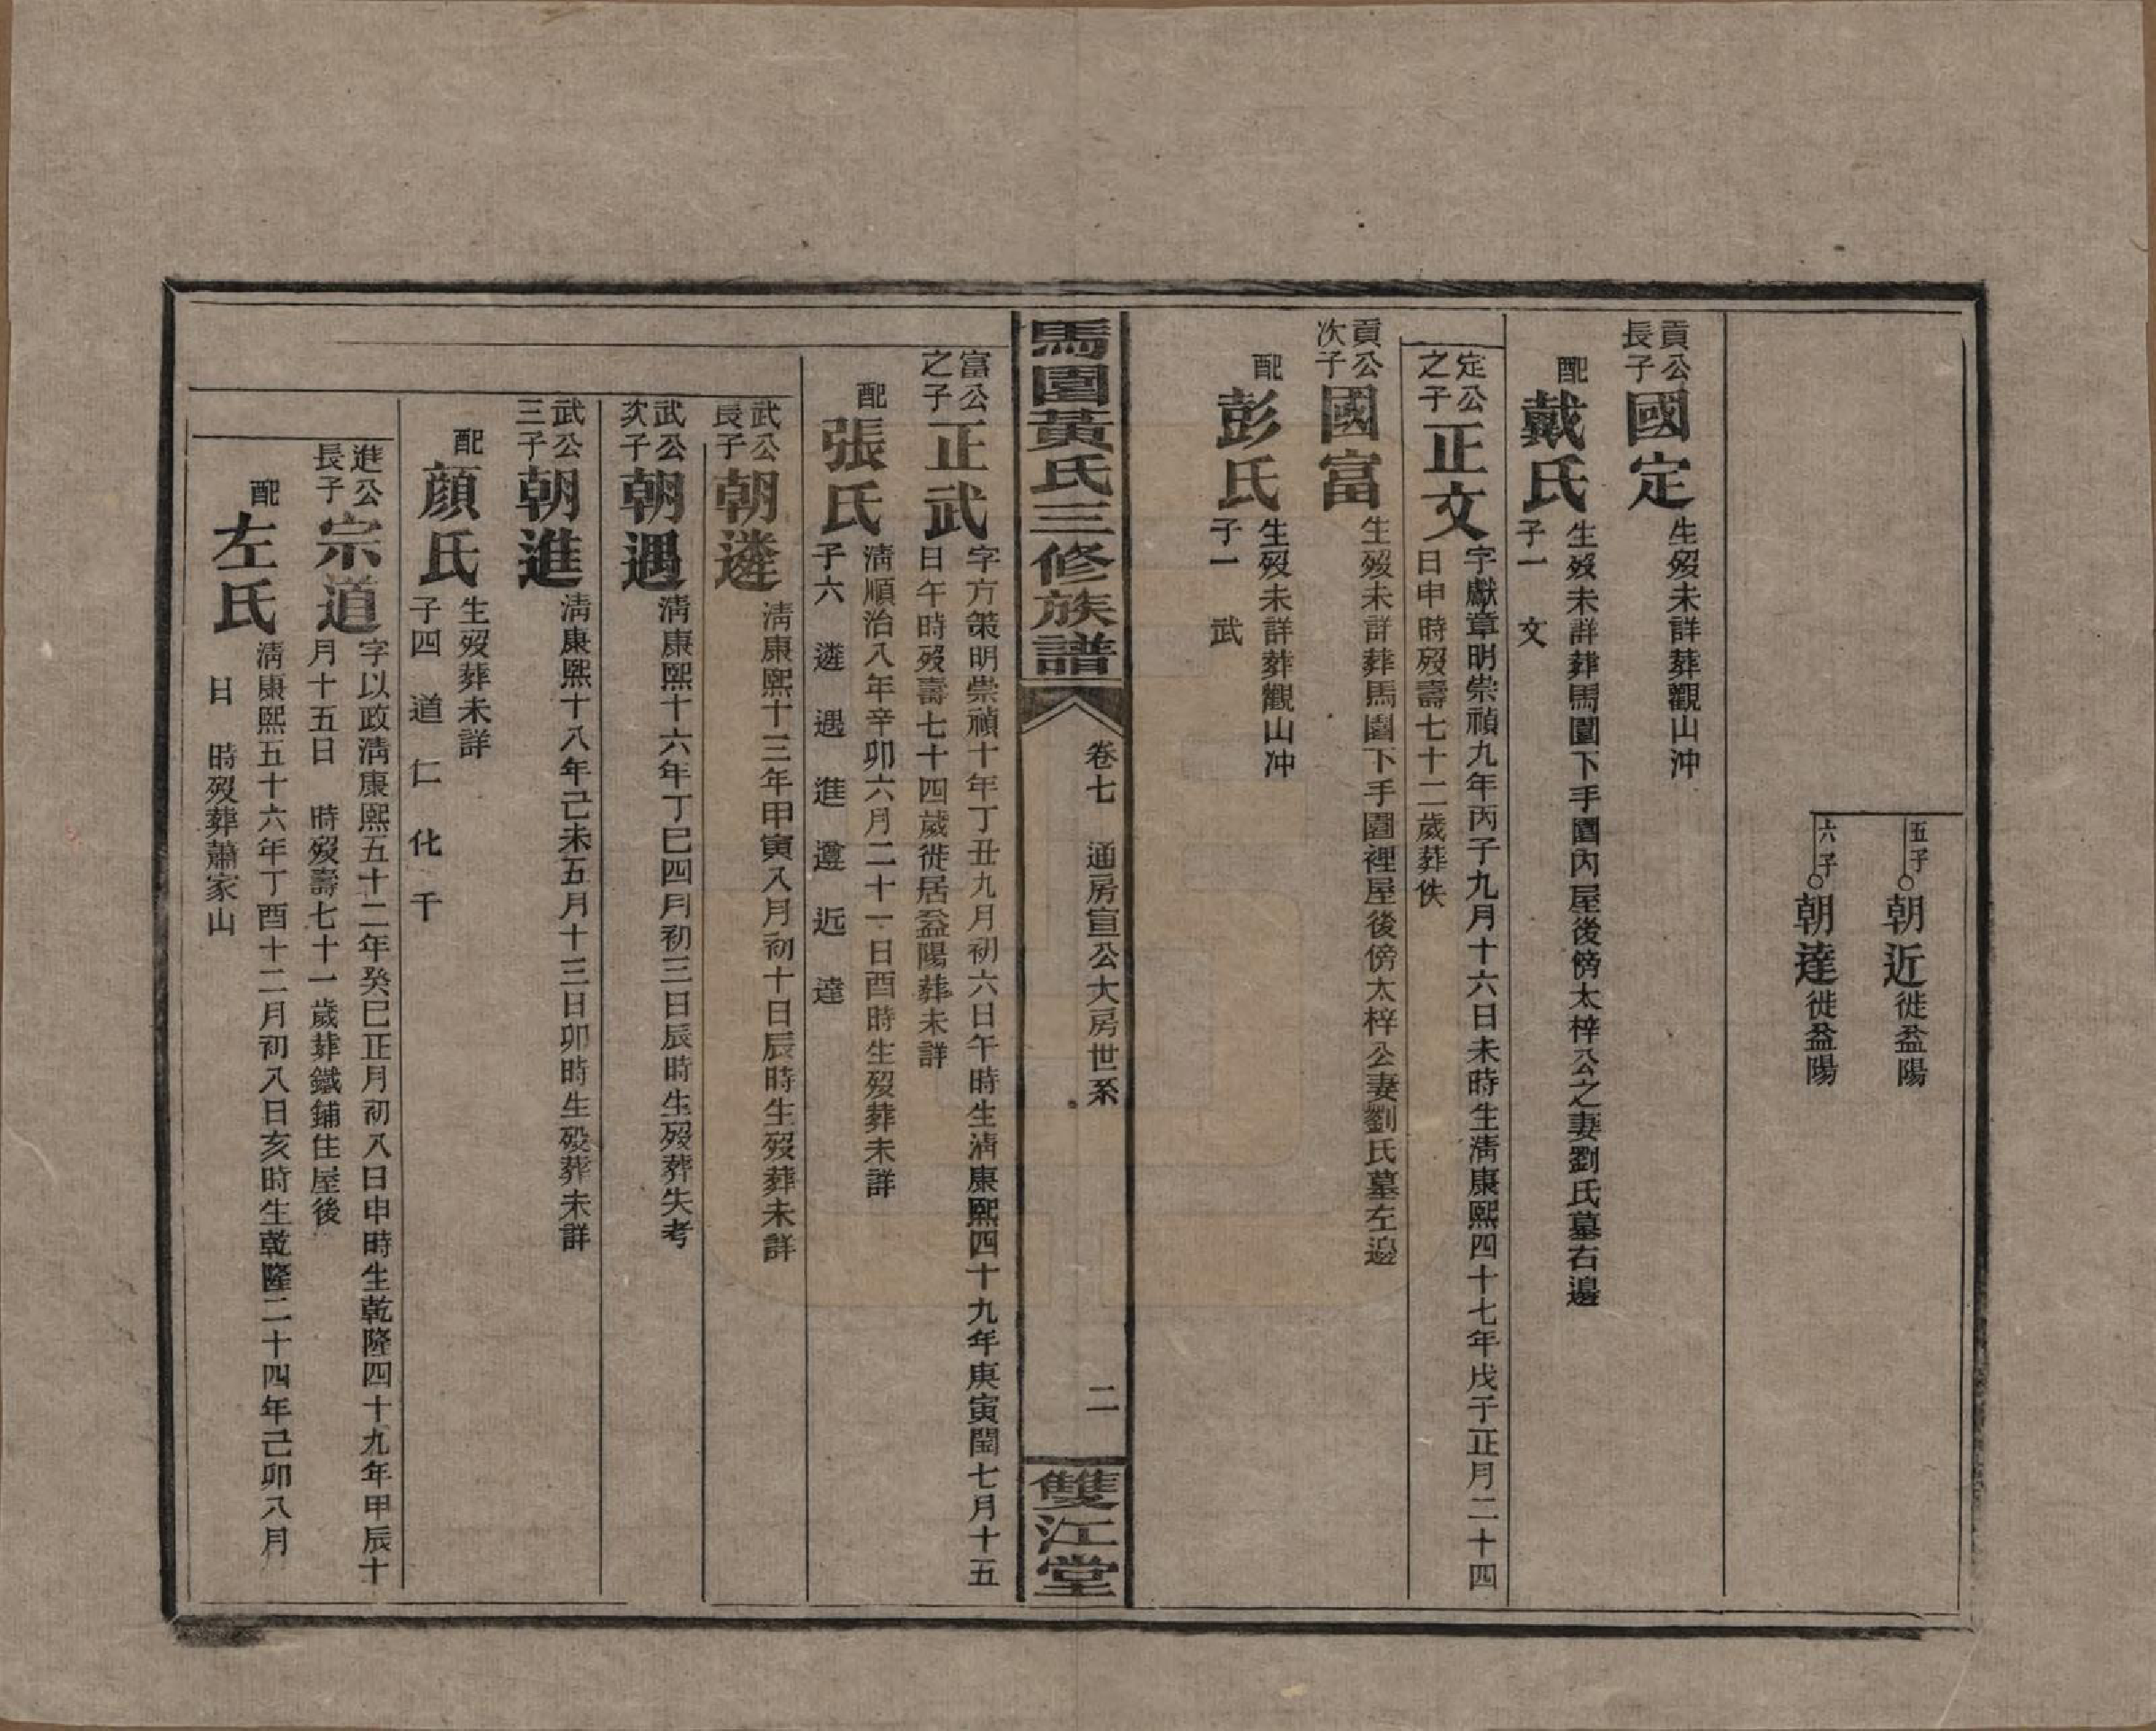 五子 朝近 徙益陽
六子 朝達 徙益陽
貢公長子 國定 生歿未詳葬觀山冲
配 戴氏 生歿未詳葬馬園下手園內屋後傍太梓公之妻劉氏墓右邊
子一 文
定公之子 正文 字獻章明崇禎九年丙子九月十六日未時生淸康熙四十七年戊子正月二十四
日申時歿壽七十二歲葬佚
貢公次子 國富 生歿未詳葬馬園下手園裡屋後傍太梓公妻劉氏墓左邊
配 彭氏 生歿未詳葬觀山冲
子一 武
馬園黃氏三修族譜 卷七 通房宣公大房世系 二 雙江堂
富公之子 正武 字方策明崇禎十年丁丑九月初六日午時生淸康熙四十九年庚寅閏七月十五
日午時歿壽七十四歲徙居益陽葬未詳
配 張氏 淸順治八年辛卯六月二十一日酉時生歿葬未詳
子六 遴 遇 進 遵 近 達
武公長子 朝遴 淸康熙十三年甲寅八月初十日辰時生歿葬未詳
武公次子 朝遇 淸康熙十六年丁巳四月初三日辰時生歿葬失考
武公三子 朝進 淸康熙十八年己未五月十三日卯時生歿葬未詳
配 顏氏 生歿葬未詳
子四 道 仁 化 千
進公長子 宗道 字以政淸康熙五十二年癸巳正月初八日申時生乾隆四十九年甲辰十
月十五日 時歿壽七十一歲葬鐵鋪住屋後
配 左氏 淸康熙五十六年丁酉十二月初八日亥時生乾隆二十四年己卯八月
日 時歿葬蕭家山